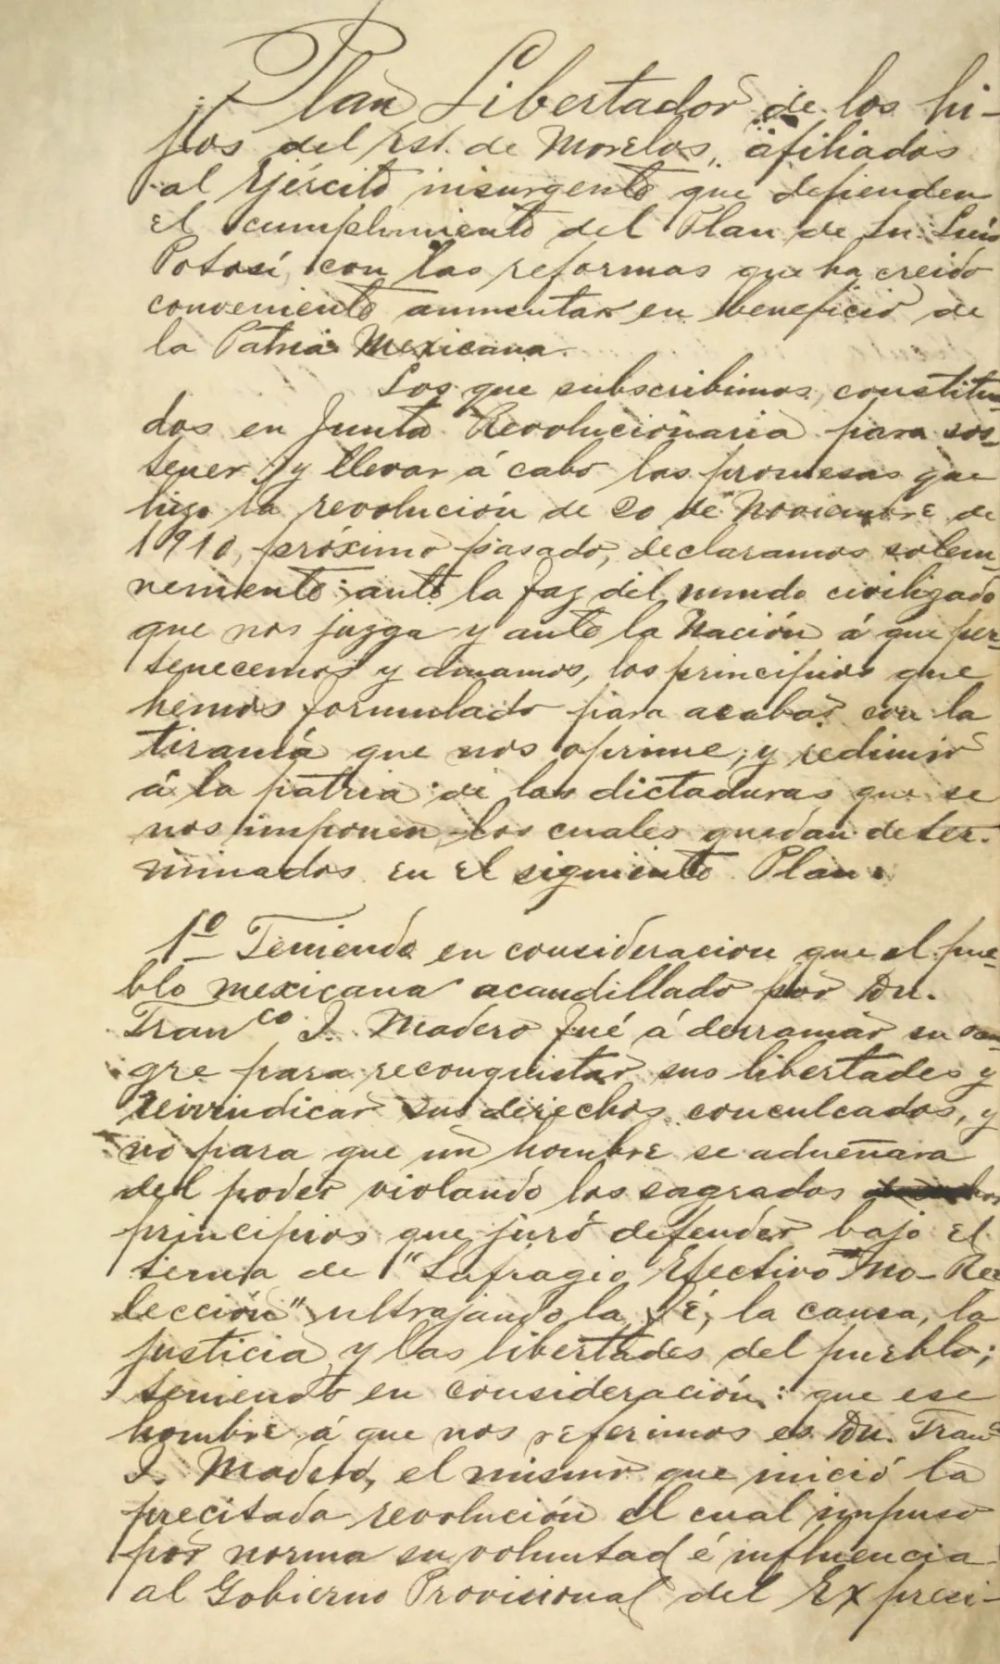 Plan Libertador de los hi-
jos del Est. de Morelos, afiliados
al Ejército insurgente que defienden
el cumplimiento del Plan de Sn. Luis
Potosí, con las reformas que ha creido
conveniente aumentar en beneficio de
la Patria Mexicana.
Los que subscribimos, constitui-
dos en Junta Revolucionaria para sos-
tener y llevar á cabo las promesas que
hizo la revolución de 20 de Noviembre de
1910, próximo pasado, declaramos solem-
nemente ante la faz del mundo civilizado
que nos juzga y ante la Nación á que per-
tenecemos y amamos, los principios que
hemos formulado para acabar con la
tiranía que nos oprime, y redimir
á la patria de las dictaduras que se
nos imponen los cuales quedan deter-
minados en el siguiente Plan:
1º Teniendo en consideracion que el pue-
blo mexicana acaudillado por Dn.
Franco I. Madero fué á derramar su san-
gre para reconquistar sus libertades y
reivindicar sus derechos conculcados, y
no para que un hombre se adueñara
del poder violando los sagrados
principios que juró defender bajo el
tema de "Sufragio Efectivo No-Ree
lección" ultrajando la fé, la causa, la
justicia y las libertades del pueblo;
teniendo en consideración: que ese
hombre á que nos referimos es Dn. Franco
I. Madero, el mismo que inició la
precitada revolución el cual impuso
por norma su voluntad é influencia
al Gobierno Provisional del Ex presi-